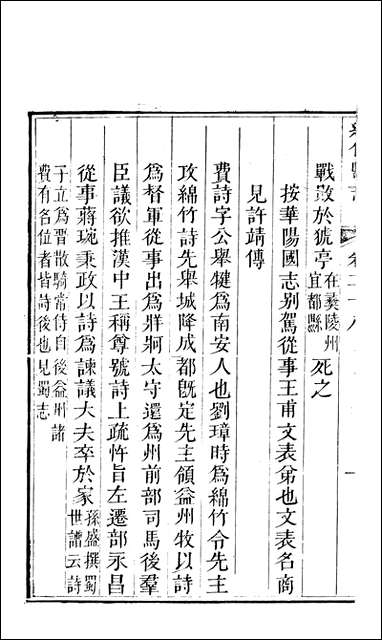 戰敗於猇亭在夷陵州宜都縣死之
按華陽國志别駕從事王甫文表弟也文表名商
見許靖傳
費詩字公舉犍為南安人也劉璋時為綿竹令先主
攻綿竹詩先舉城降成都旣定先主領益州牧以詩
為督軍從事出為牂牁太守還為州前部司馬後羣
臣議欲推漢中王稱尊號詩上疏忤旨左遷部永昌
從事蔣琬秉政以詩為諫議大夫卒於家孫盛撰蜀世譜云詩
子立為晋散騎常侍自後益州諸
費有名位者皆詩後也見蜀志